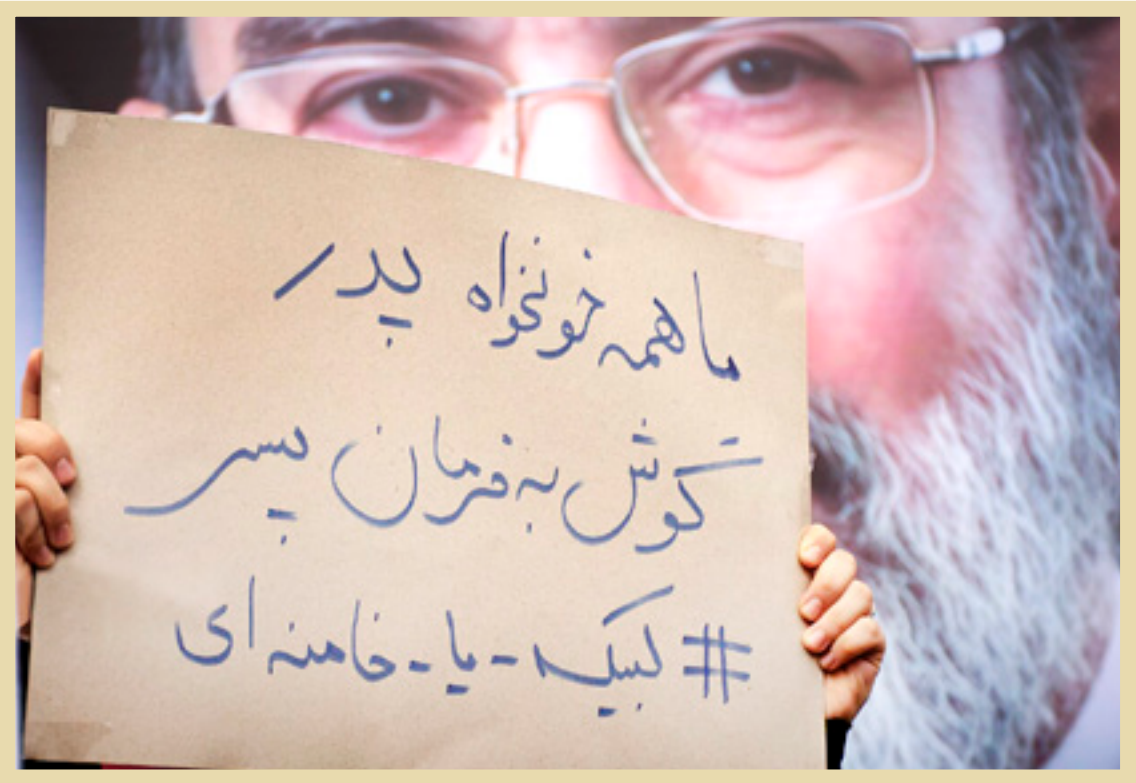 ما همه خونخواه پدر
گوش به فرمان پسر
#لبیک-یا-خامنه ای